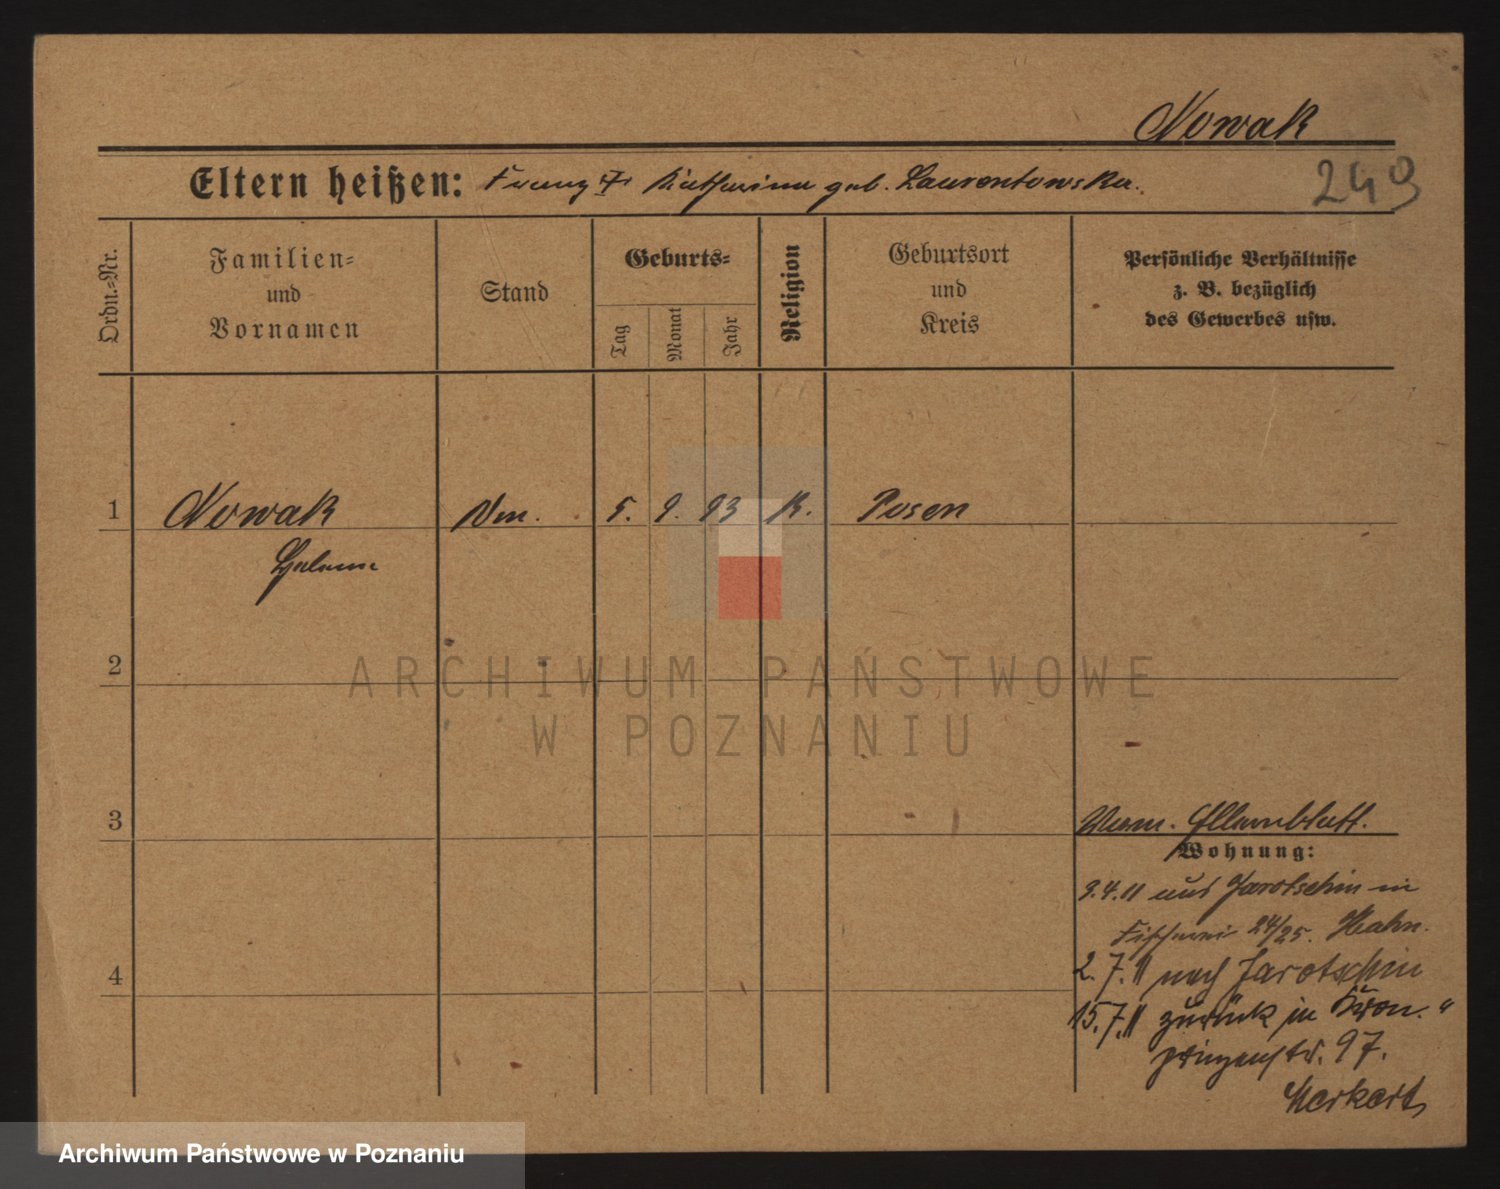 Nowak
249
Eltern heißen: Franz † Katharina geb. Laurentowska.
Ordn.-Nr.
Familien-
und
Vornamen
Stand
Geburts-
Tag
Monat
Jahr
Religion
Geburtsort
und
Kreis
Persönliche Verhältnisse
z. B. bezüglich
des Gewerbes usw.
1 Nowak 5. 9. 93 K. Posen
Helene
2
ARCHIWUM PAŃSTWOWE
W POZNANIU
3
Elternblatt.
Wohnung:
3.4.11 aus Jarotschin in
Fischerei 24/25. Hahn.
4
2.7.11 nach Jarotschin
15.7.11 zurück in Kron-
prinzenstr. 97.
Markert
Archiwum Państwowe w Poznaniu